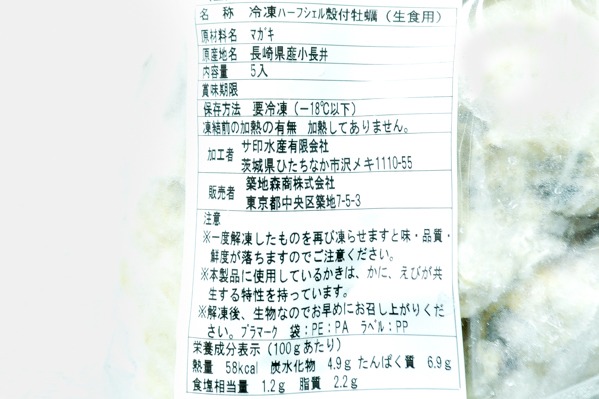 名　称　冷凍ハーフシェル殻付牡蠣（生食用）
原材料名　マガキ
原産地名　長崎県産小長井
内容量　5入
賞味期限
保存方法　要冷凍（－18℃以下）
凍結前の加熱の有無　加熱してありません。
加工者　サ印水産有限会社
茨城県ひたちなか市沢メキ1110-55
販売者　築地森商株式会社
東京都中央区築地7-5-3
注意
※一度解凍したものを再び凍らせますと味・品質・
鮮度が落ちますのでご注意ください。
※本製品に使用しているかきは、かに、えびが共
生する特性を持っています。
※解凍後、生物なのでお早めにお召し上がりくだ
さい。プラマーク　袋：PE：PA　ラベル：PP
栄養成分表示（100gあたり）
熱量　58kcal　炭水化物　4.9g たんぱく質　6.9g
食塩相当量　1.2g　脂質　2.2g